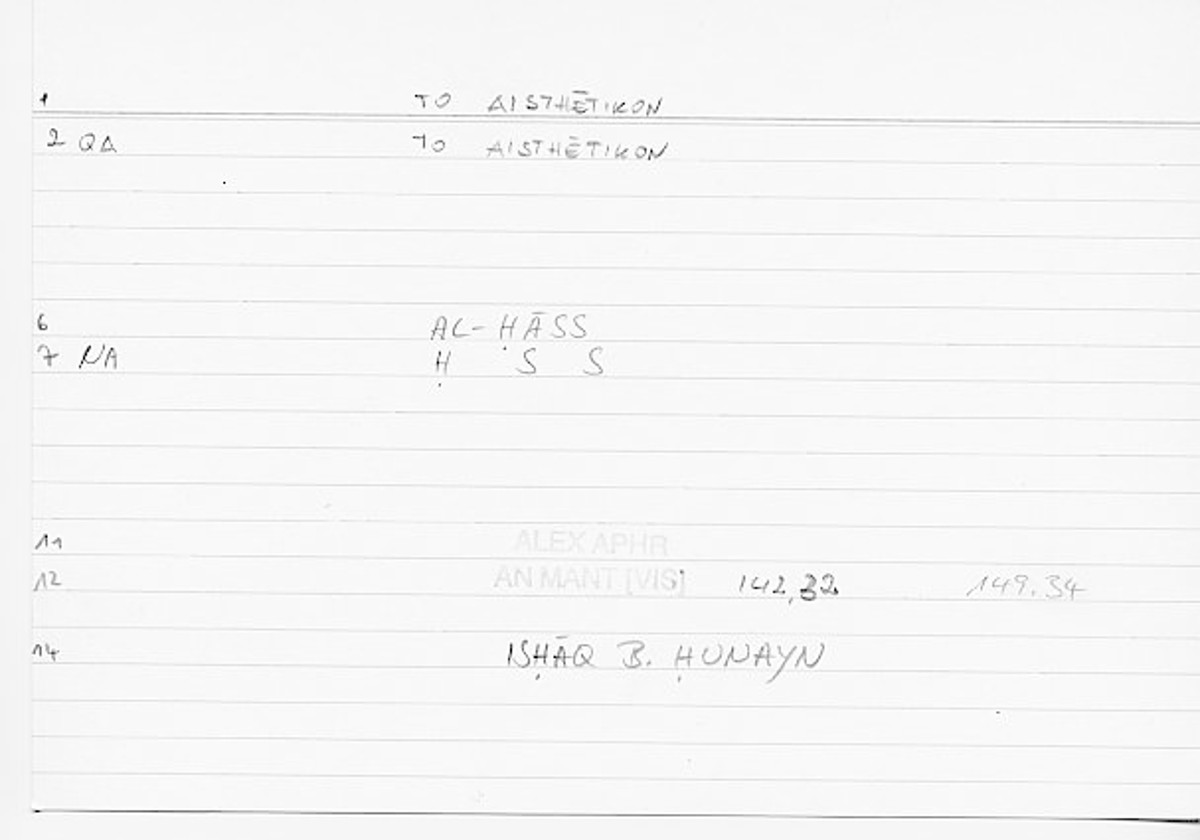 1 TO AISTHĒTIKON
2 QA TO AISTHĒTIKON
6 AL-ḤĀSS
7 NA Ḥ S S
11 ALEX APHR
12 AN MANT [VIS] 142,32 149.34
14 ISḤĀQ B. ḤUNAYN